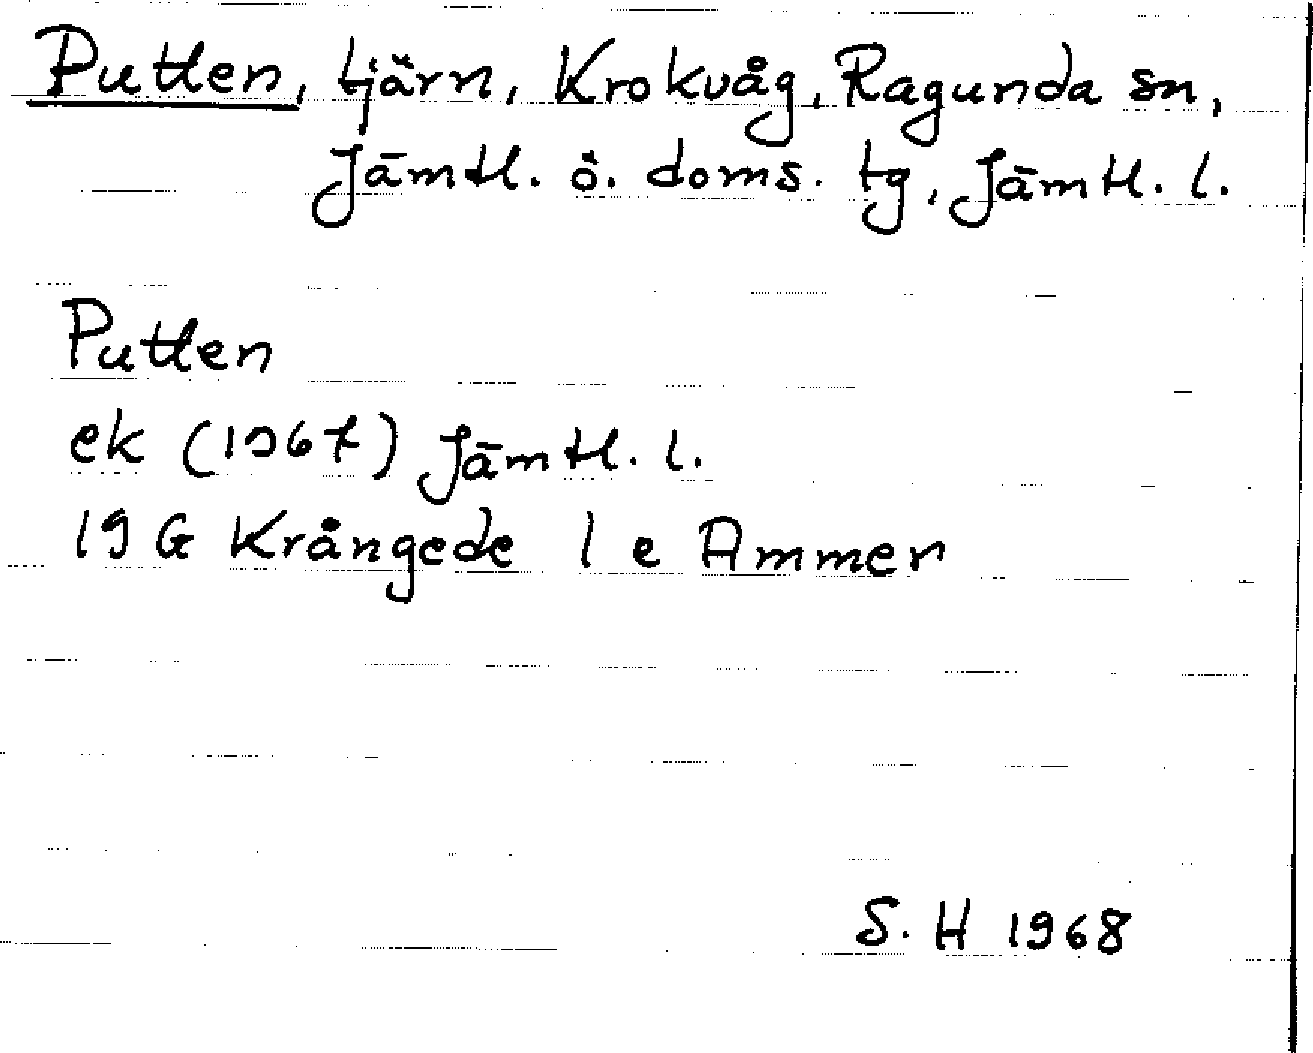 Putten, tjärn, Krokvåg, Ragunda sn,
Jämtl. ö. doms. tg, Jämtl. l.
Putten
ek (1967) Jämtl. l.
19 G Krångede 1 e Ammer
S. H 1968